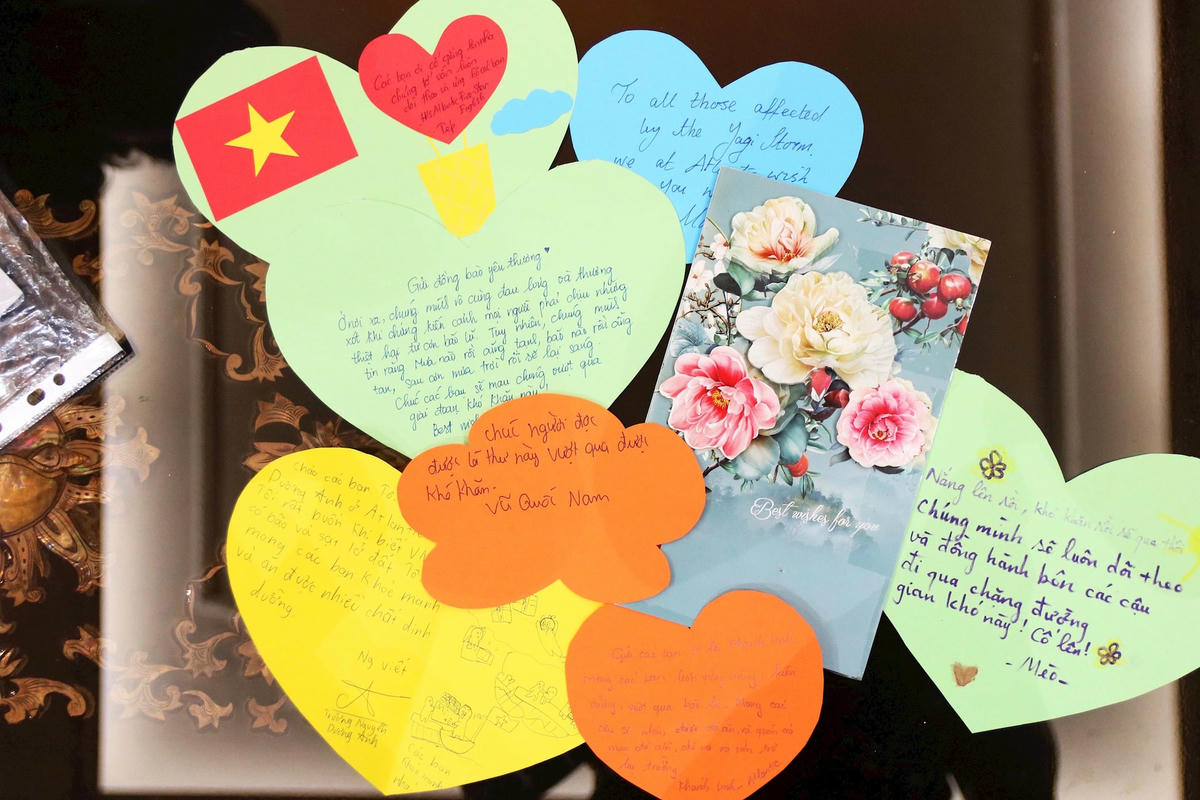 Các bạn ơi cố gắng lên nhé
chúng tớ vẫn luôn
dõi theo và ủng hộ các bạn
English
Tép
To all those affected
by the Yagi Storm.
we at
wish
you
Gửi đồng bào yêu thương
Ở nơi xa, chúng mình vô cùng đau lòng và thương
xót khi chứng kiến cảnh mọi người phải chịu những
thiệt hại từ cơn bão lũ. Tuy nhiên, chúng mình
tin rằng mưa nào rồi cũng tạnh, bão nào rồi cũng
tan, sau cơn mưa trời rồi sẽ lại sáng
Chúc các bạn sẽ mau chóng vượt qua
giai đoạn khó khăn này!
Best
chúc người đọc
được lá thư này vượt qua được
khó khăn.
Vũ Quốc Nam
Best wishes for you
chào các bạn Tô
Dương Anh ở Atlan
Tôi rất buồn khi biết VN
có bão và sạt lở đất Tô
mong các bạn khoẻ mạnh
và ăn được nhiều chất dinh
dưỡng
Ng viết
Trương Nguyễn
Dương Anh
Các bạn
khoẻ mạnh
nha!
Nắng lên rồi, khó khăn rồi sẽ qua thôi
Chúng mình sẽ luôn dõi theo
và đồng hành bên các cậu
đi qua chặng đường
gian khó này! Cố lên!
- Mèo -
Gửi các bạn
mong các bạn luôn
vượt qua bão lũ. Mong các
Khánh Linh